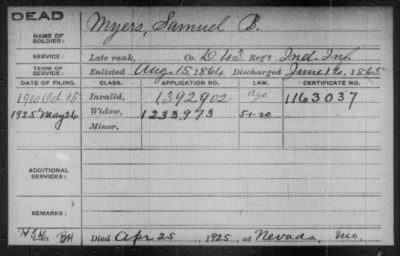 DEAD
NAME OF SOLDIER: Myers, Samuel B.
SERVICE: Late rank, Co. D 43 Reg't Ind. Inf.
TERM OF SERVICE: Enlisted Aug. 15, 1864 Discharged June 1865
DATE OF FILING. CLASS. APPLICATION NO. LAW. CERTIFICATE NO.
1910 Oct 15 Invalid, 1392902 Age 1163037
1925 May 26 Widow, 1233973 5-1-20
Minor,
ADDITIONAL SERVICES:
REMARKS:
Died Apr 25, 1925, at Nevada, Mo.